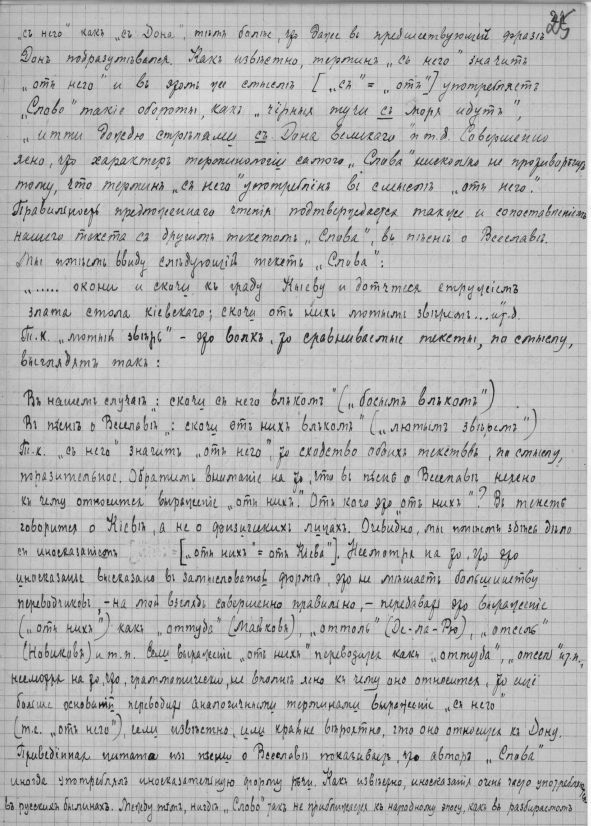 25
„съ него“ какъ „съ Дона“, тѣмъ болѣе, что даже въ предшествующей фразѣ
Донъ подразумѣвался. Какъ извѣстно, терминъ „съ него“ значитъ
„отъ него“ и въ этомъ же смыслѣ [„съ“ = „отъ“] употребляетъ
„Слово“ такіе обороты, какъ „чёрныя тучи съ моря идутъ“,
„итти дождю стрѣлами съ Дона великаго“ и т.д. Совершенно
ясно, что характеръ терминологіи самого „Слова“ нисколько не противорѣчитъ
тому, что терминъ „съ него“ употреблёнъ въ смыслѣ „отъ него“.
Правильность предложеннаго чтенія подтверждается также и сопоставленіемъ
нашего текста съ другимъ текстомъ „Слова“, въ пѣсни о Всеславѣ.
Мы имѣемъ ввиду слѣдующій текстъ „Слова“:
„..... окони и скочи къ граду Кыеву и дотчеся стружіемъ
злата стола кіевскаго; скочи отъ нихъ лютымъ звѣремъ... и т.д.
Т.к. „лютый звѣрь“ – это волкъ, то сравниваемые тексты, по смыслу,
выглядятъ такъ:
Въ нашемъ случаѣ: скочи съ него влъкомъ“ („босымъ влъкомъ“)
Въ пѣснѣ о Всеславѣ: скочи отъ нихъ влъкомъ“ („лютымъ звѣремъ“)
Т.к. „съ него“ значитъ „отъ него“, то сходство обоихъ текстовъ, по смыслу,
поразительное. Обратимъ вниманіе на то, что въ пѣснѣ о Всеславѣ неясно
къ чему относится выраженіе „отъ нихъ“. Отъ кого это „отъ нихъ“? Въ текстѣ
говорится о Кіевѣ, а не о физическихъ лицахъ. Очевидно, мы имѣемъ здѣсь дѣло
съ иносказаніемъ [„отъ нихъ“ = отъ Кіева“]. Несмотря на то, что это
иносказаніе высказано въ замысловатой формѣ, это не мѣшаетъ большинству
переводчиковъ, – на мой взглядъ совершенно правильно, – передавать это выраженіе
(„отъ нихъ“) какъ „оттуда“ (Майковъ), „оттоль“ (Де-ла-Рю), „отсель“
(Новиковъ) и т.п. Если выраженіе „отъ нихъ“ переводится какъ „оттуда“, „отсель“ и т.п.,
несмотря на то, что, грамматически, не вполнѣ ясно къ чему оно относится, то ещё
больше основаній переводить аналогичными терминами выраженіе „съ него“
(т.е. „отъ него“), если извѣстно, или крайне вѣроятно, что оно относится къ Дону.
Приведённая цитата изъ пѣсни о Всеславѣ показываетъ, что авторъ „Слова“
иногда употреблялъ иносказательную форму рѣчи. Какъ извѣстно, иносказанія очень часто употребляются
въ русскихъ былинахъ. Между тѣмъ, нигдѣ „Слово“ такъ не приближается къ народному эпосу, какъ въ разбираемомъ